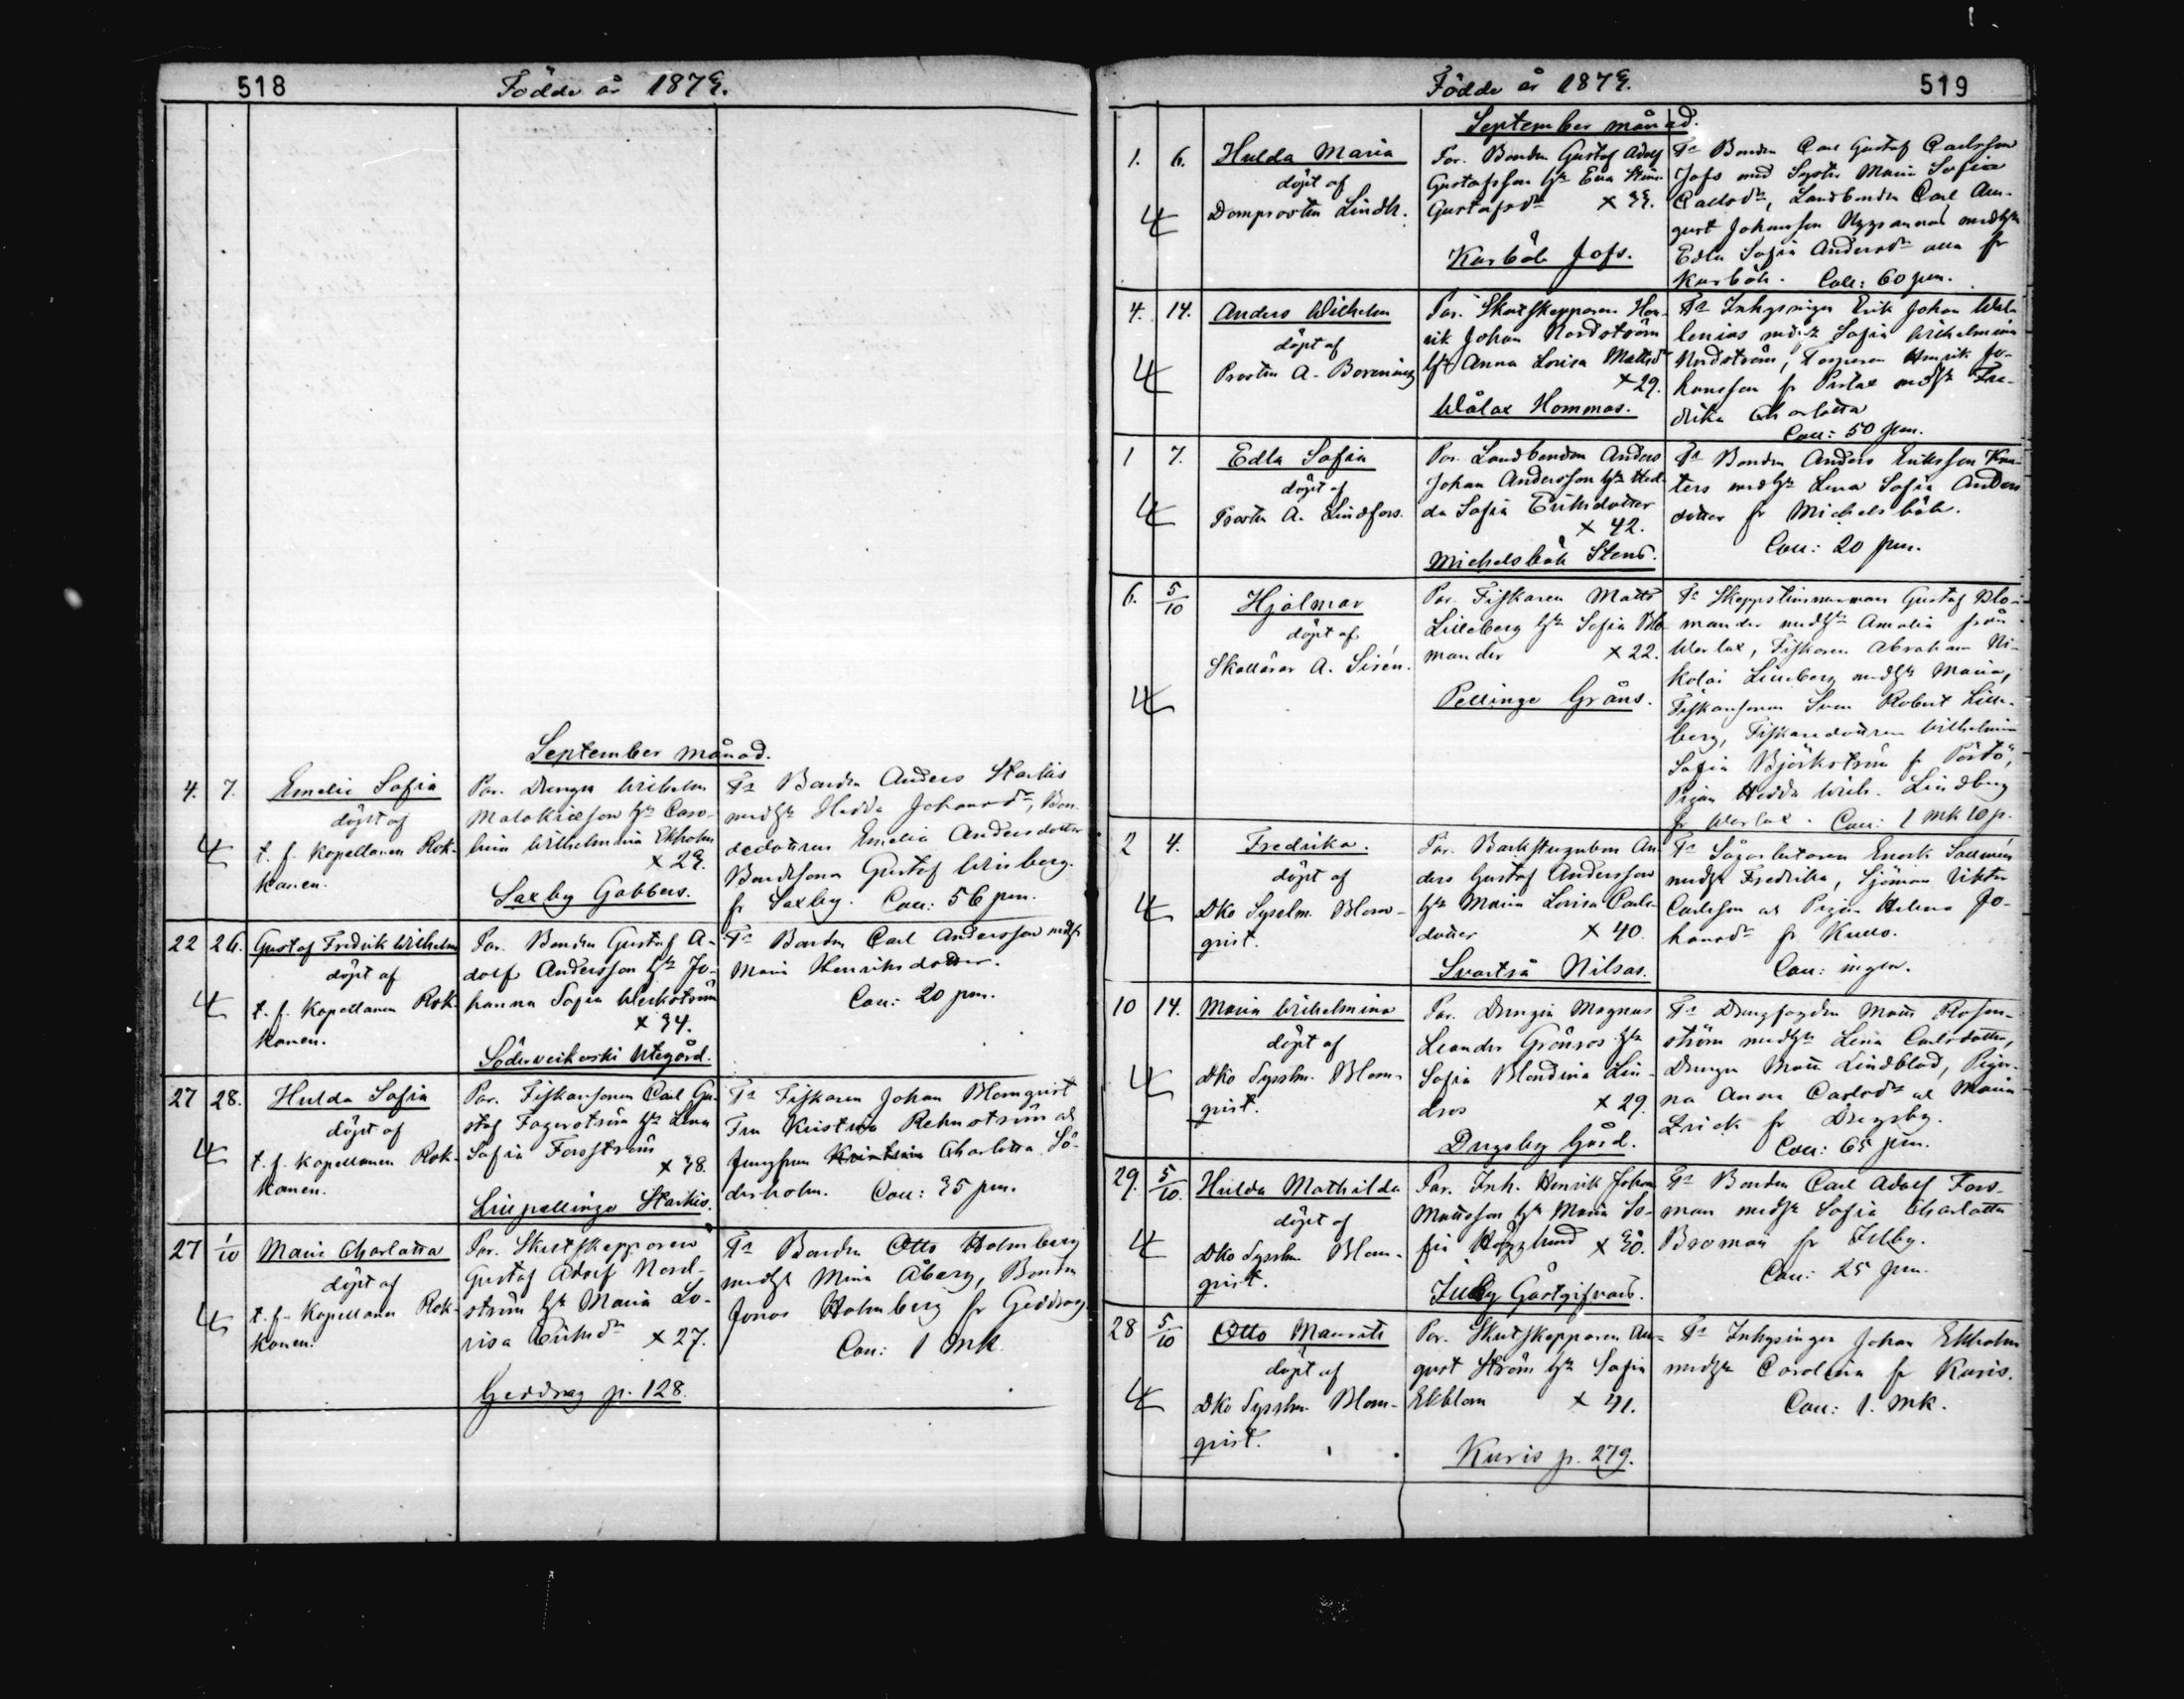 518
Födde år 1873.
September månad.
4. 7. Emelie Sofia
döpt af
t. f. Kapellanen Rok-
kanen.
Par. Drengen Wilhelm
Malakiasson h:u Caro-
lina Wilhelmina Ekholm
x 23.
Saxby Gabbers.
F:a Bonden Anders Starkis
med h:u Hedda Johansd:r, Bon-
dedottren Emelia Andersdotter
Bondesonen Gustaf Winberg
fr Saxby. Coll: 56 pen.
22 26. Gustaf Fredrik Wilhelm
döpt af
t. f. Kapellanen Rok-
kanen.
Par. Bonden Gustaf A-
dolf Andersson h:u Jo-
hanna Sofia Weckström
x 34.
Söderveikoski Utegård.
F:a Bonden Carl Andersson med h:u
Maria Henriksdotter.
Coll: 20 pen.
27 28. Hulda Sofia
döpt af
t. f. Kapellanen Rok-
kanen.
Par. Fiskaresonen Carl Gu-
staf Fagerström h:u Lena
Sofia Forsström
x 38.
Lillpellinge Starkis.
F:a Fiskaren Johan Blomqvist
Fru Kristina Rehnström ok
Jungfrun Charlotta Sö-
derholm. Coll: 35 pen.
27 1/10 Maria Charlotta
döpt af
t. f. Kapellanen Rok-
kanen.
Par. Skutskepparen
Gustaf Adolf Nord-
ström h:u Maria Lo-
visa Eriksd:r x 27.
Geddrag p. 128.
F:a Bonden Otto Holmberg
med h:u Mina Åberg, Bonden
Jonas Holmberg fr Geddrag
Coll: 1 mk.
Födde år 1873.
519
September månad.
1. 6. Hulda Maria
döpt af
Domprosten Lindh.
Par. Bonden Gustaf Adolf
Gustafsson h:u Eva Stina
Gustafsd:r x 33.
Karböle Jofs.
F:a Bonden Carl Gustaf Carlsson
Jofs med Syster Maria Sofia
Carlsd:r, Landbonden Carl Au-
gust Johansson med h:u
Edla Sofia Andersd:r alla fr
Karböle. Coll: 60 pen.
4. 14. Anders Wilhelm
döpt af
Prosten A. Borenius
Par. Skutskepparen Hen-
rik Johan Nordström
h:u Anna Lovisa Mattsd:r
x 29.
Wålax Hommas.
F:a Inhysingen Erik Johan Wal-
lenius med h:u Sofia Wilhelmina
Nordström, Torparen Henrik Jo-
hansson fr med h:u Fre-
drika Charlotta
Coll: 50 pen.
1 7. Edla Sofia
döpt af
Prosten A. Lindfors.
Par. Landbonden Anders
Johan Andersson h:u Hed-
da Sofia Eriksdotter
x 42.
Michelsböle Stens.
F:a Bonden Anders Eriksson Kna-
ters med h:u Lena Sofia Anders
dotter fr Michelsböle.
Coll: 20 pen.
6. 5/10 Hjalmar
döpt af
Skollärar A. Sirén.
Par. Fiskaren Matts
Lilleberg h:u Sofia Blo-
mander x 22.
Pellinge Gräns.
F:a Skeppstimmerman Gustaf Blo-
mander med h:u Amalia från
Warlax, Fiskaren Abraham Ni-
kolai Lilleberg med h:u Maria,
Fiskaresonen Sven Robert Lille-
berg, Fiskaredottren Wilhelmina
Sofia Björkström fr Pörtö,
Pigan Hedda Wilh. Lindberg
fr Warlax. Coll: 1 mk 10 p.
2 4. Fredrika.
döpt af
Dko Sysslm. Blom-
qvist.
Par. Backstugubon An-
ders Gustaf Andersson
h:u Maria Lovisa Carls-
dotter x 40.
Svartså Nilsas.
F:a Sågarbetaren Enock Sallmén
med h:u Fredrika, Sjöman Viktor
Carlsson ok Pigan Helena Jo-
hansd:r fr Kullo.
Coll: ingen.
10 14. Maria Wilhelmina
döpt af
Dko Sysslm. Blom-
qvist.
Par. Drengen Magnus
Leander Grönroos h:u
Sofia Blondina Lin-
dros x 29.
Drugsby Gård.
F:a Drengfogden Matts Rosen-
ström med h:u Lena Carlsdotter,
Drengen Matts Lindblad, Pigor-
na Anna Carlsd:r ok Maria
Frick fr Drugsby.
Coll: 65 pen.
29. 5/10. Hilda Mathilda
döpt af
Dko Sysslm. Blom-
qvist.
Par. Inh. Henrik Johan
Mattsson h:u Maria So-
fia Hogglund x 30.
Illby Gästgifvars.
F:a Bonden Carl Adolf Fors-
man med h:u Sofia Charlotta
Broman fr Illby.
Coll: 25 pen.
28 5/10 Otto Maurits
döpt af
Dko Sysslm. Blom-
qvist.
Par. Skutskepparen Au-
gust Ström h:u Sofia
Ekblom x 41.
Kuris p. 279.
F:a Inhysingen Johan Ekholm
med h:u Carolina fr Kuris.
Coll: 1. mk.